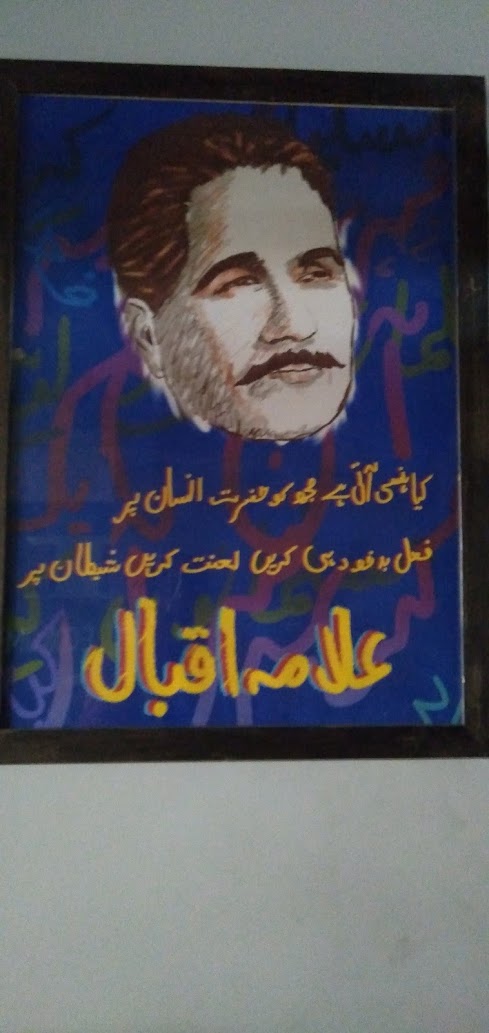 کیا ہنسی آتی ہے مجھ کو حضرت انسان پر
فعل بد خود ہی کریں لعنت کریں شیطان پر
علامہ اقبال